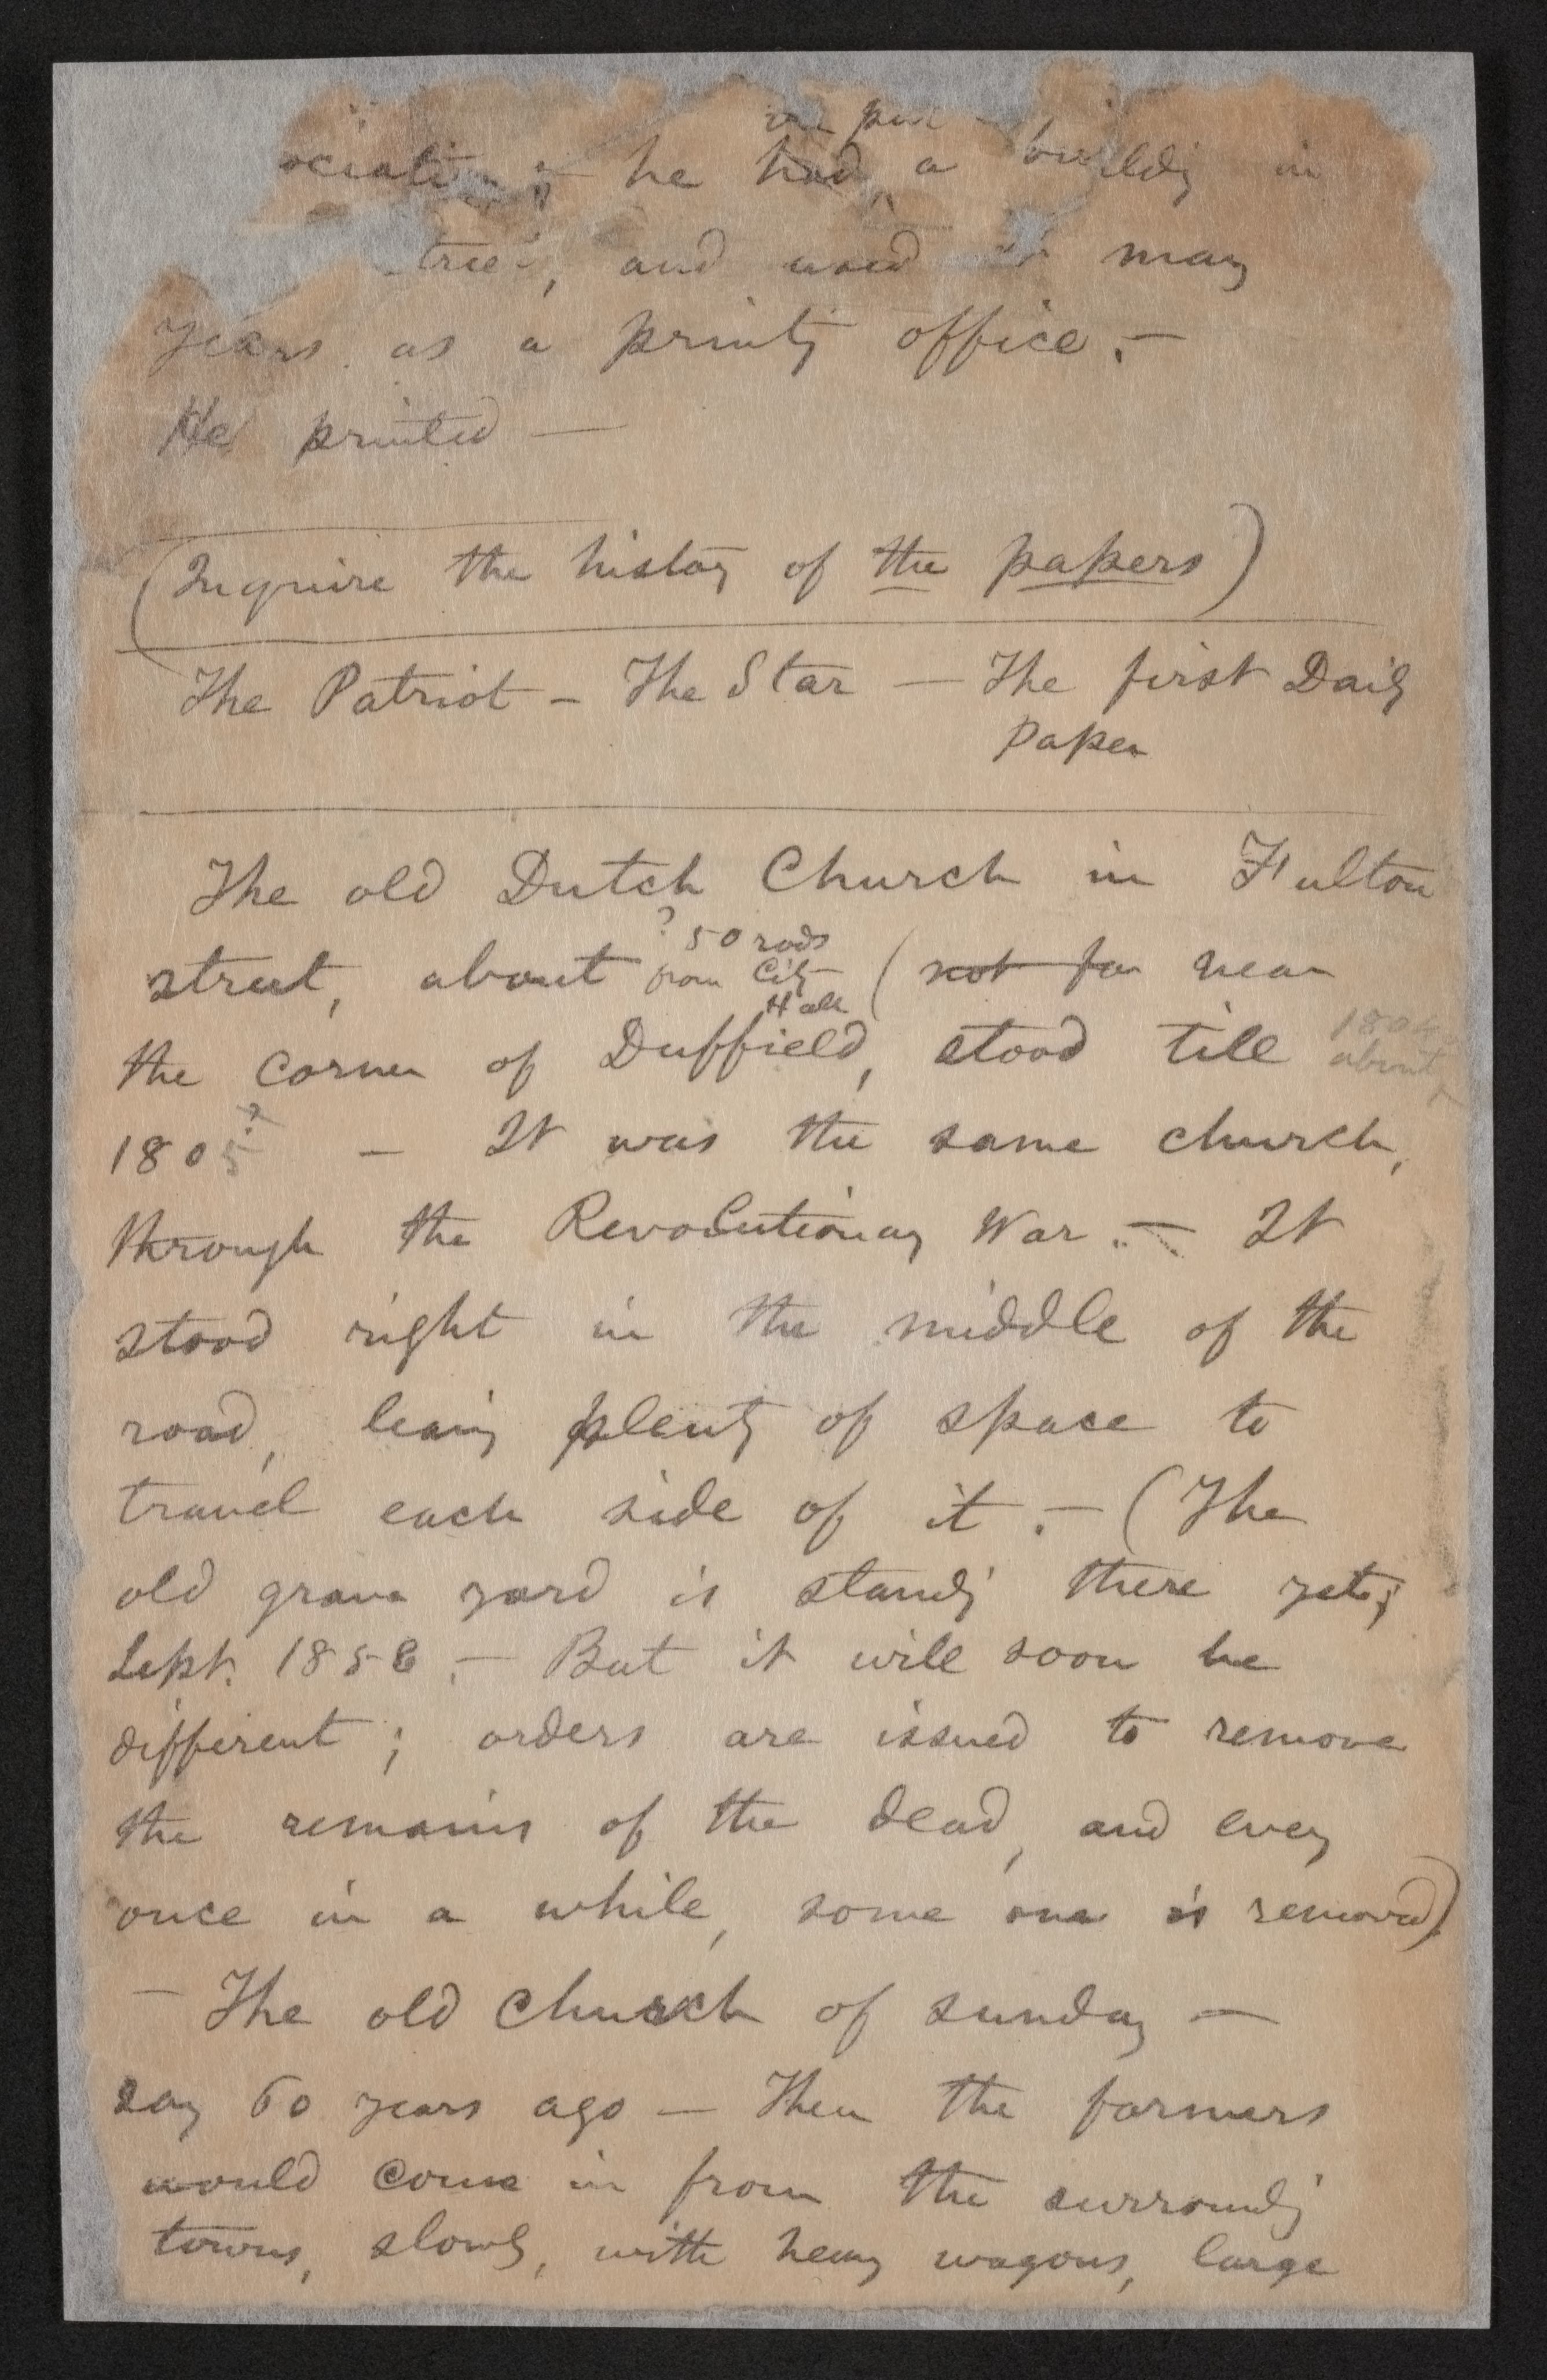 he had a buildg in
and used it many
years as a printg office.—
He printed —
(Inquire the history of the papers)
The Patriot — The Star — The first Daily
Paper
The old Dutch Church in Fulton
? 50 rods
street, about from City (not far near
Hall
the corner of Duffield, stood till about
1805? — It was the same church,
through the Revolutionary War.— It
stood right in the middle of the
road, leavig plenty of space to
travel each side of it.— (The
old grave yard is standg there yet;
Sept. 1858.— But it will soon be
different; orders are issued to remove
the remains of the dead, and every
once in a while, some one is removed)
— The old church of sunday —
say 60 years ago — Then the farmers
would come in from the surroundg
towns, slowly, with heavy wagons, large